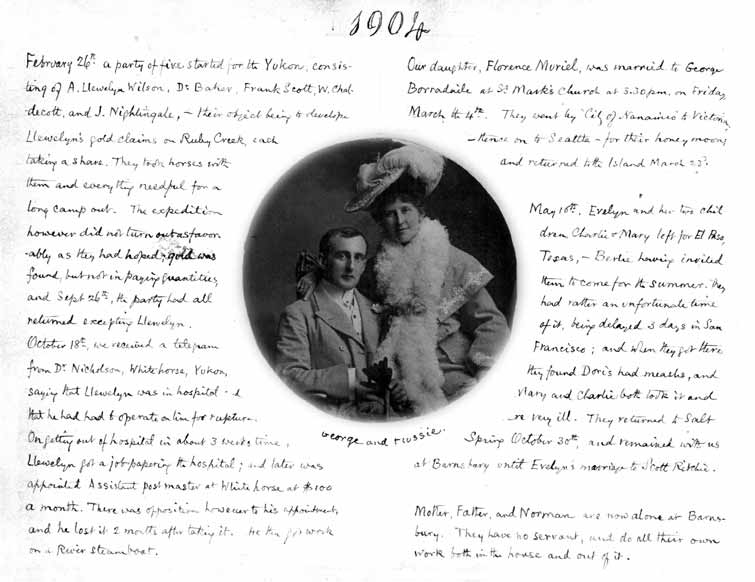 1904
February 26th a party of five started for the Yukon, consis-
ting of A. Llewelyn Wilson, Dr Baker, Frank Scott, W. Chal-
decott, and J. Nightingale, – their object being to develope
Llewelyn's gold claims on Ruby Creek, each
taking a share. They took horses with
them and everything needful for a
long camp out. The expedition
however did not turn out as favor-
ably as they had hoped; gold was
found, but not in paying quantities,
and Sept 26th, the party had all
returned excepting Llewelyn.
October 18th, we received a telegram
from Dr Nicholson, Whitehorse, Yukon,
saying that Llewelyn was in hospital &
that he had had to operate on him for rupture.
On getting out of hospital in about 3 weeks time,
Llewelyn got a job papering the hospital; and later was
appointed Assistant post master at White horse at $100
a month. There was opposition however to his appointment,
and he lost it 2 months after taking it. He then got work
on a River steamboat.
George and Flussie.
Our daughter, Florence Muriel, was married to George
Borradaile at St Mark's Church at 3.30 p.m. on Friday,
March the 4th. They went by "City of Nanaimo" to Victoria,
– thence on to Seattle – for their honey moon,
and returned to the Island March 23rd.
May 10th, Evelyn and her two chil
dren Charlie & Mary left for El Paso,
Texas, – Bertie having invited
them to come for the summer. They
had rather an unfortunate time
of it, being delayed 3 days in San
Francisco; and when they got there
they found Doris had measles, and
Mary and Charlie both took it and
re very ill. They returned to Salt
Spring October 30th, and remained with us
at Barnsbury until Evelyn's marriage to Scott Ritchie.
Mother, Father, and Norman are now alone at Barns-
bury. They have no servant, and do all their own
work both in the house and out of it.